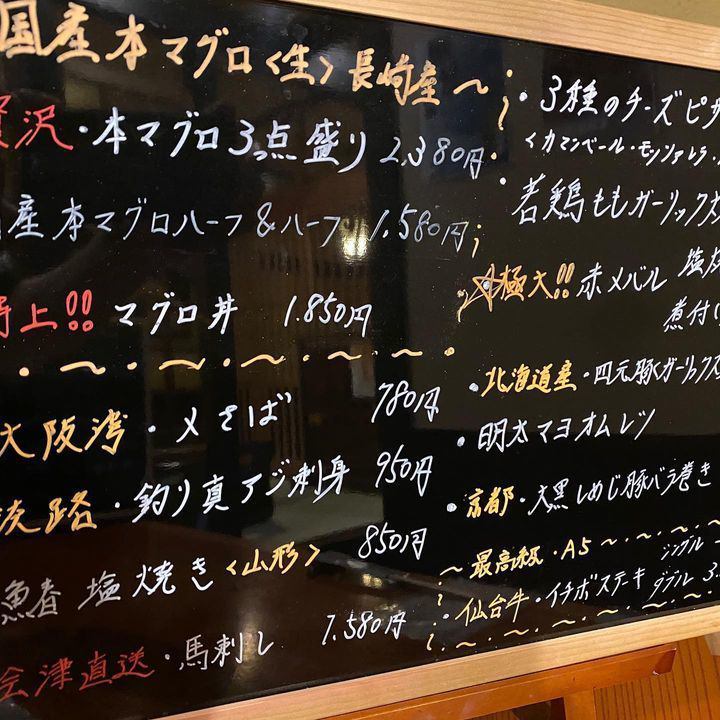 国産本マグロ<生>長崎産～
贅沢・本マグロ3点盛り 2,380円
産本マグロハーフ&ハーフ 1.580円
特上!! マグロ丼 1.850円
・～・～・～・～・～・
大阪湾・〆さば 780円
淡路・釣り真アジ刺身 950円
魚春 塩焼き<山形> 850円
会津直送・馬刺し 1.580円
・3種のチーズピザ
<カマンベール・モッツァレラ・
・若鶏ももガーリック
☆極大!!赤メバル 塩焼
煮付け
・北海道産・四元豚ガーリックス
・明太マヨオムレツ
・京都・大黒しめじ豚バラ巻き
～最高級・A5～・～・～・～
仙台牛・イチボステーキ シングル
ダブル 3.
・～・～・～・～・～